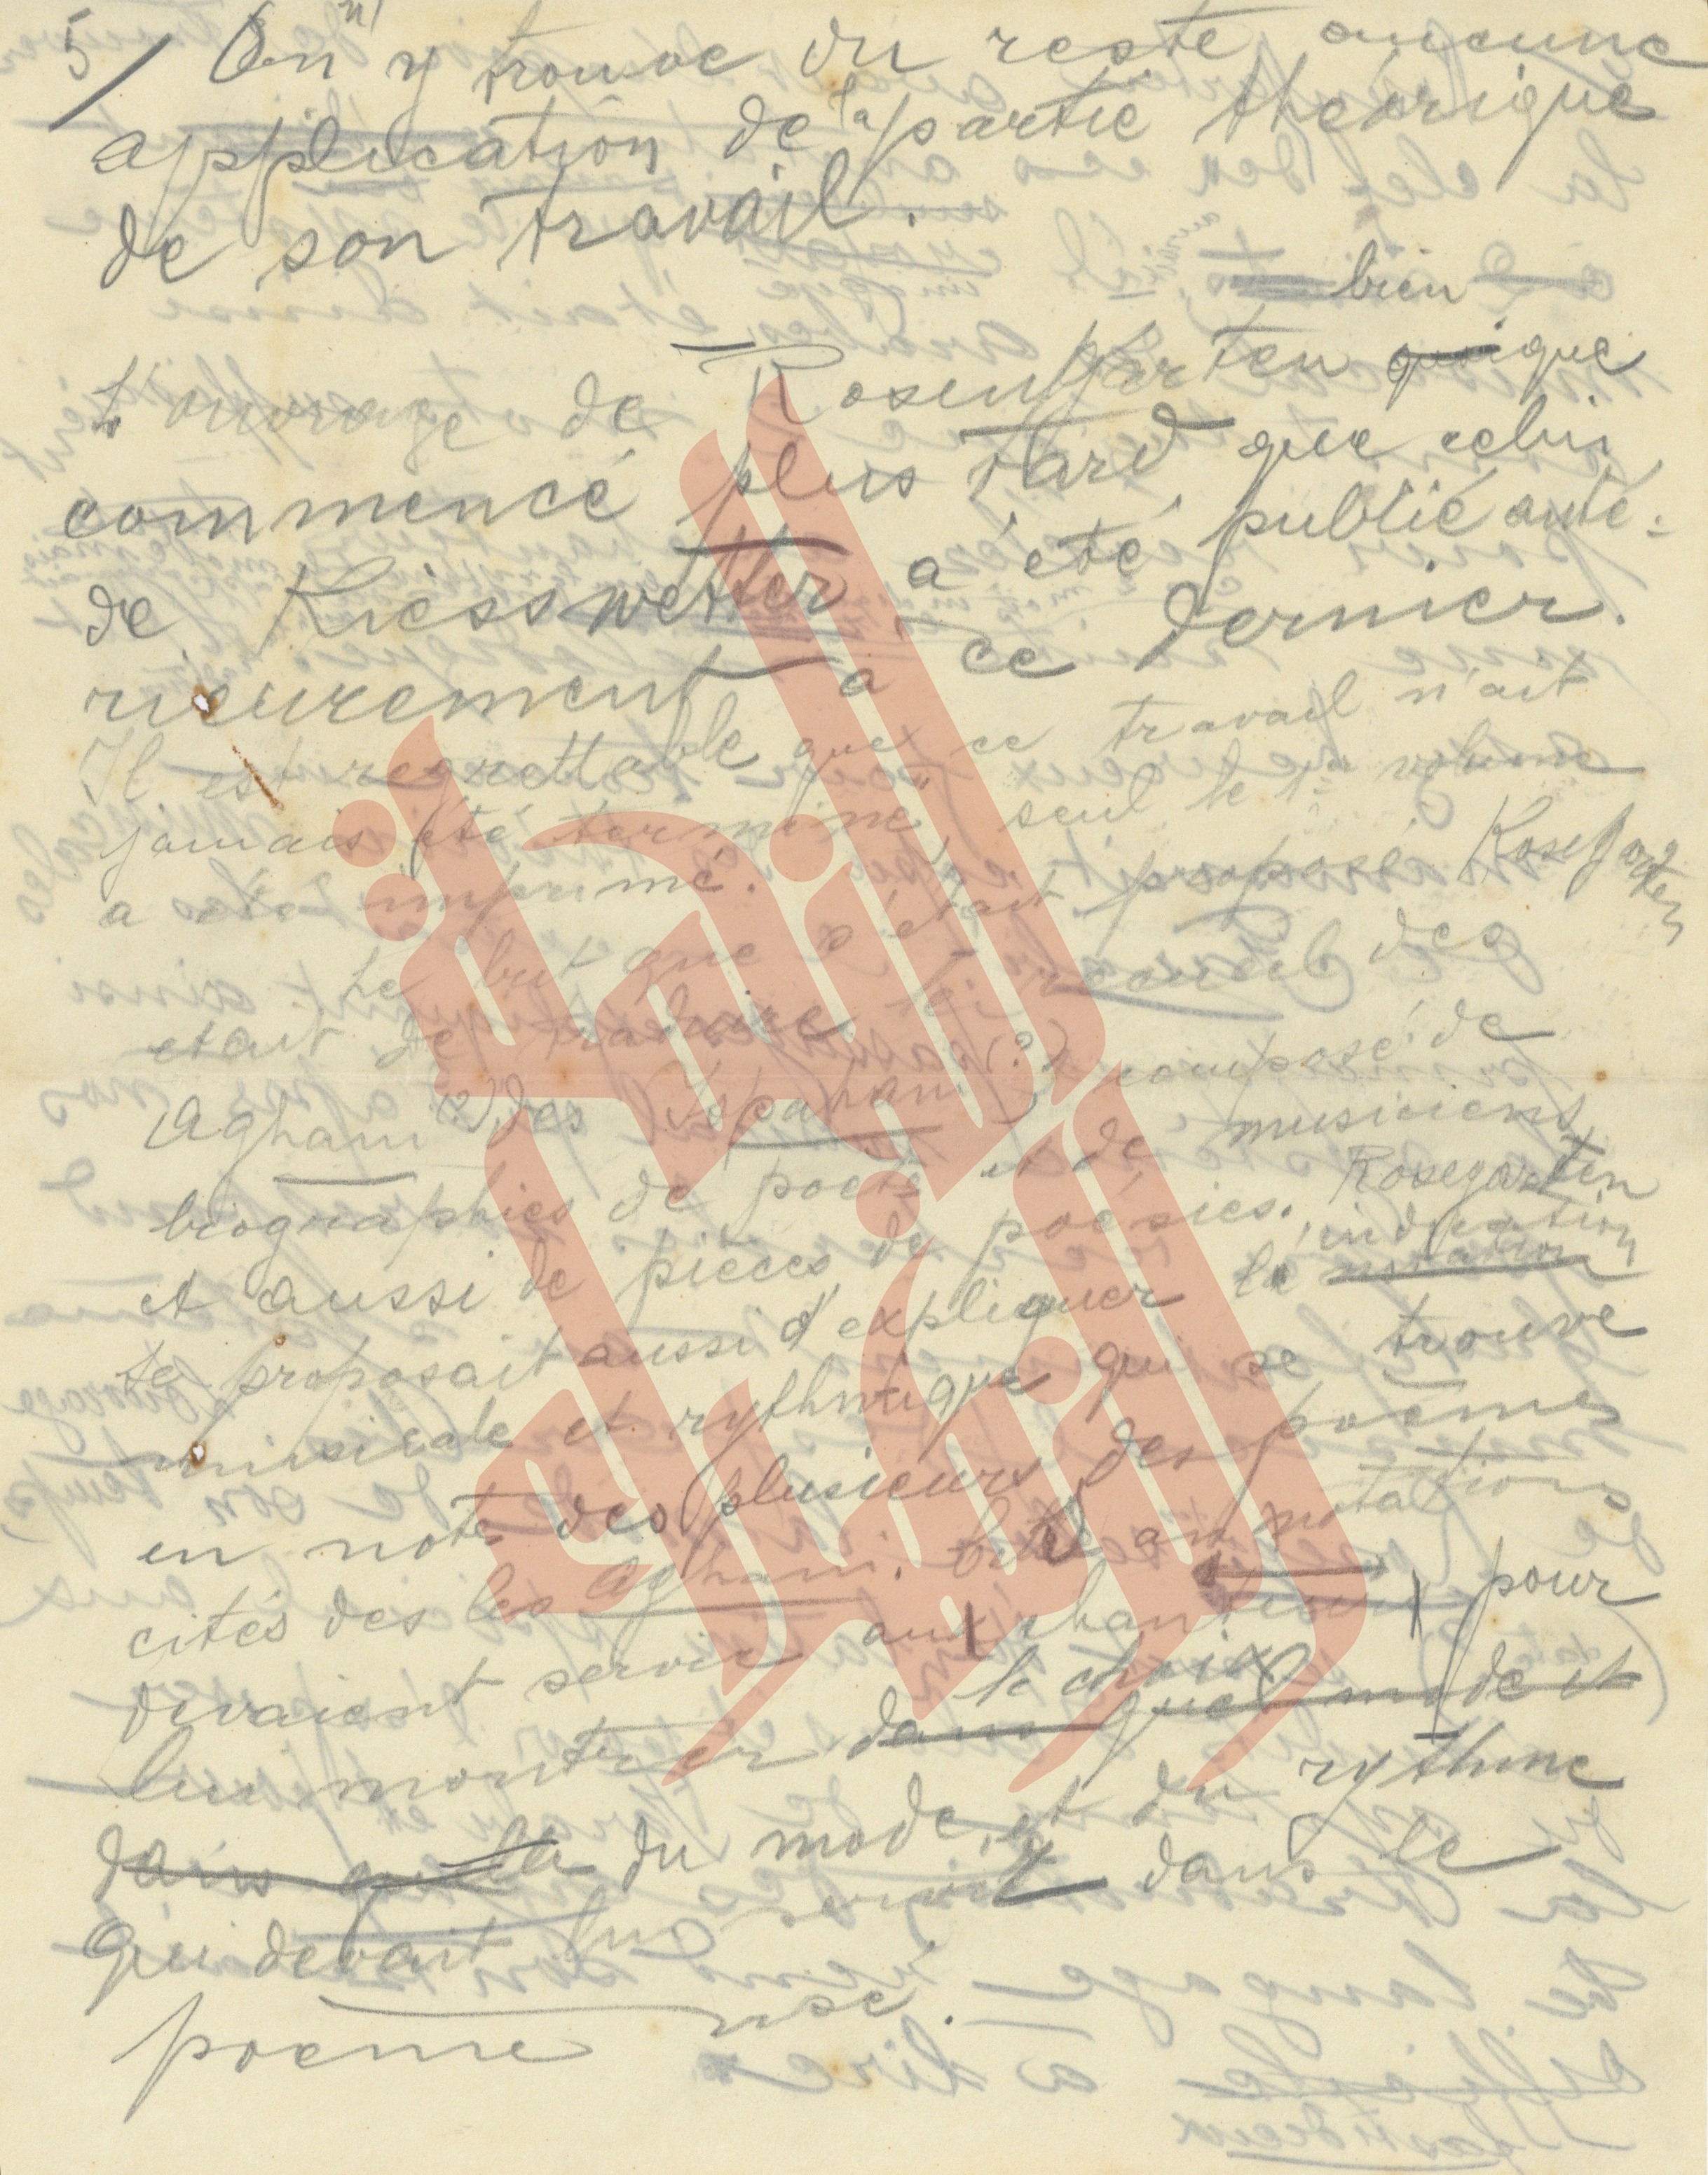 5/ On n' y trouve du reste aucune
application de la partie théorique
de son travail.
bien
L'ouvrage de Rosengarten quoique
commencé plus tard que celui
de Kiesswetter a été publié anté-
rieurement à ce dernier.
Il est regrettable que ce travail n'ait
jamais été terminé, seul le 1er volume
a été imprimé.
Le but que s'était proposé Rosegarten
était de traduire le recueil des
Agham (?) des Ispahani (?) composé de
biographies de poète et de musiciens
et aussi de pièces de poésies. Rosegarten
se proposait aussi d'expliquer l'indication notation
musicale et rythmique qui se trouve
en note des plusieurs des poèmes
cités des les Agham. annotations
devaient servir aux chanteurs pour
lui montrer dans quel mode et
le choix
dans qu la du mode et du rythme
qui devait lui servir dans le
poème usé.